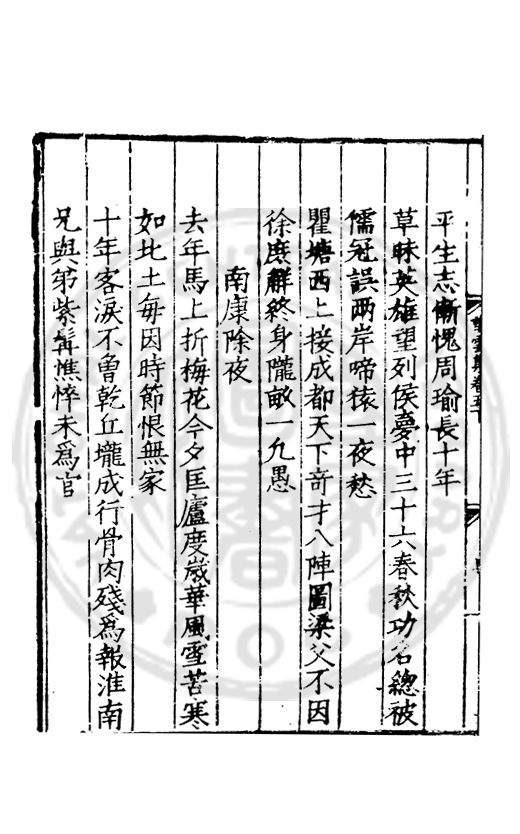 平生志慚愧周瑜長十年
草昧英雄望列侯夢中三十六春秋功名總被
儒冠誤兩岸啼猿一夜愁
瞿塘西上接成都天下奇才八陣圖梁父不因
徐庶觧終身隴畝一九愚
南康除夜
去年馬上折梅花今夕匡廬度歳華風雪苦寒
如比土毎因時節恨無家
十年客淚不曽乾丘壠成行骨肉殘爲報淮南
兄與弟紫髯憔悴未爲官